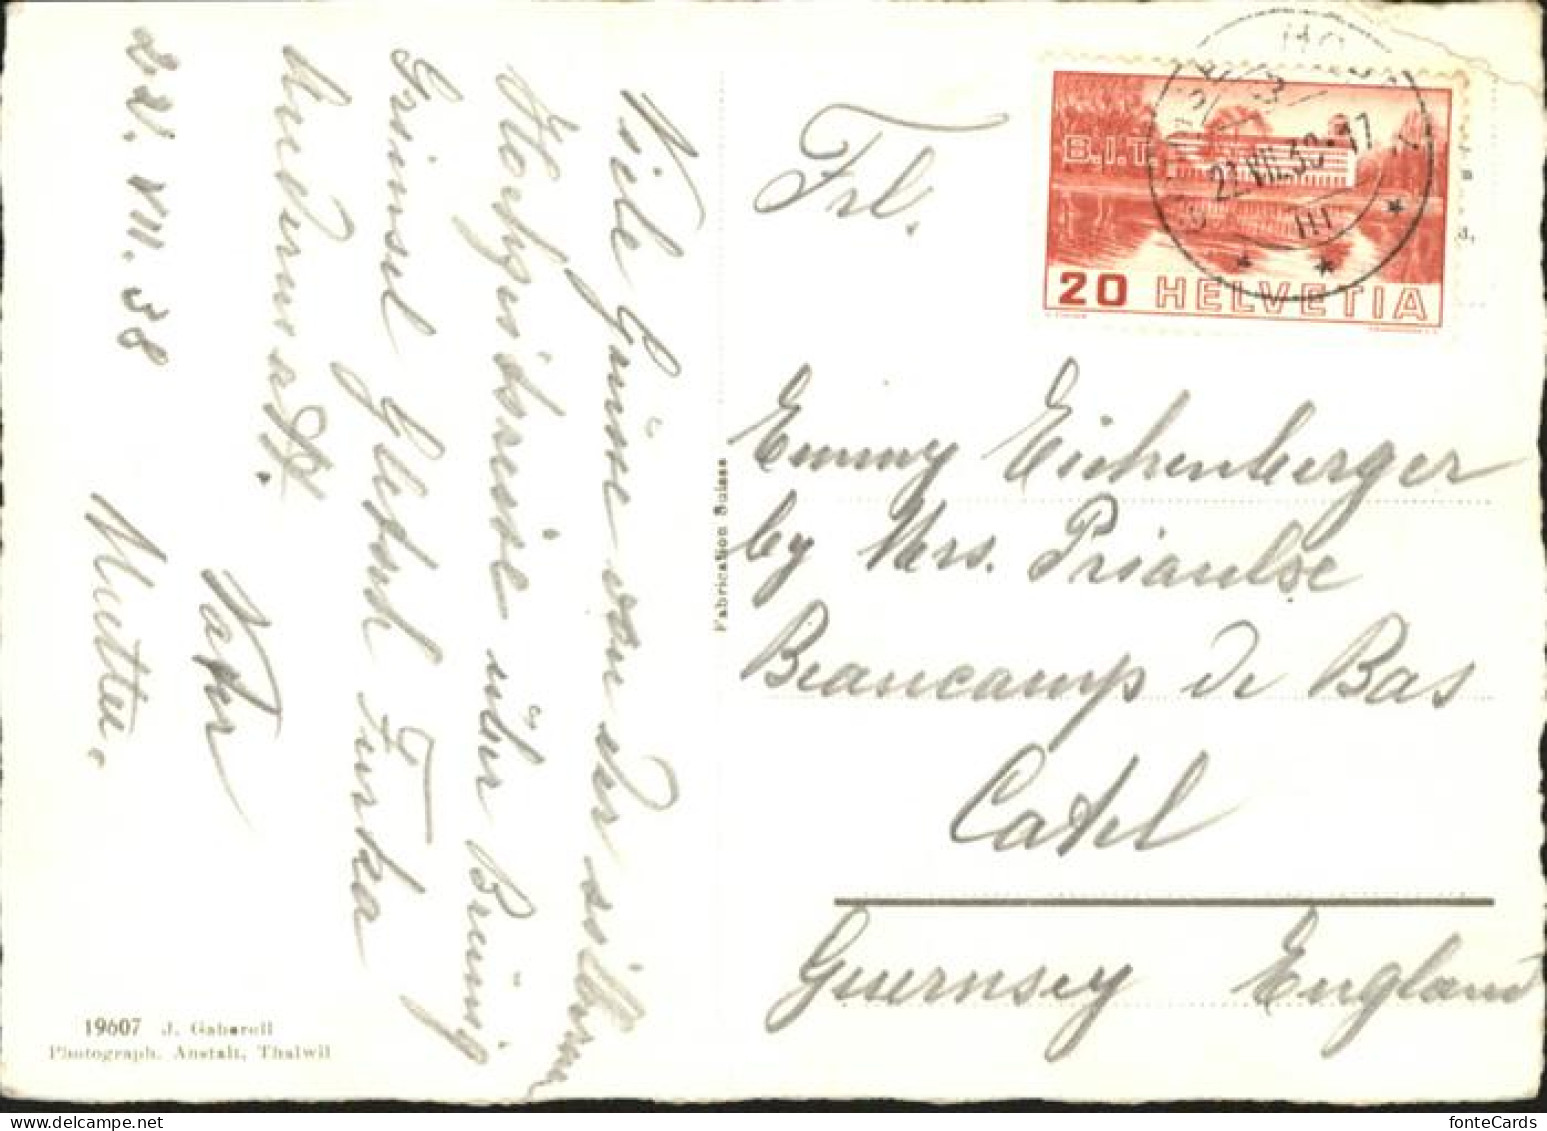 22. VII. 38
Viele Grüsse von der silbernen
Hochzeitsreise über Brünig
Grimsel Gletsch Furka
Andermatt.
Vater
Mutter.
19607 J. Gaberell
Photograph. Anstalt, Thalwil
Fabrication Suisse
B.I.T
20 HELVETIA
22.VII.38-17
III
Frl.
Emmy Eichenberger
by Mrs. Priaulse
Beaucamp de Bas
Catel
Guernsey England
fonteCards